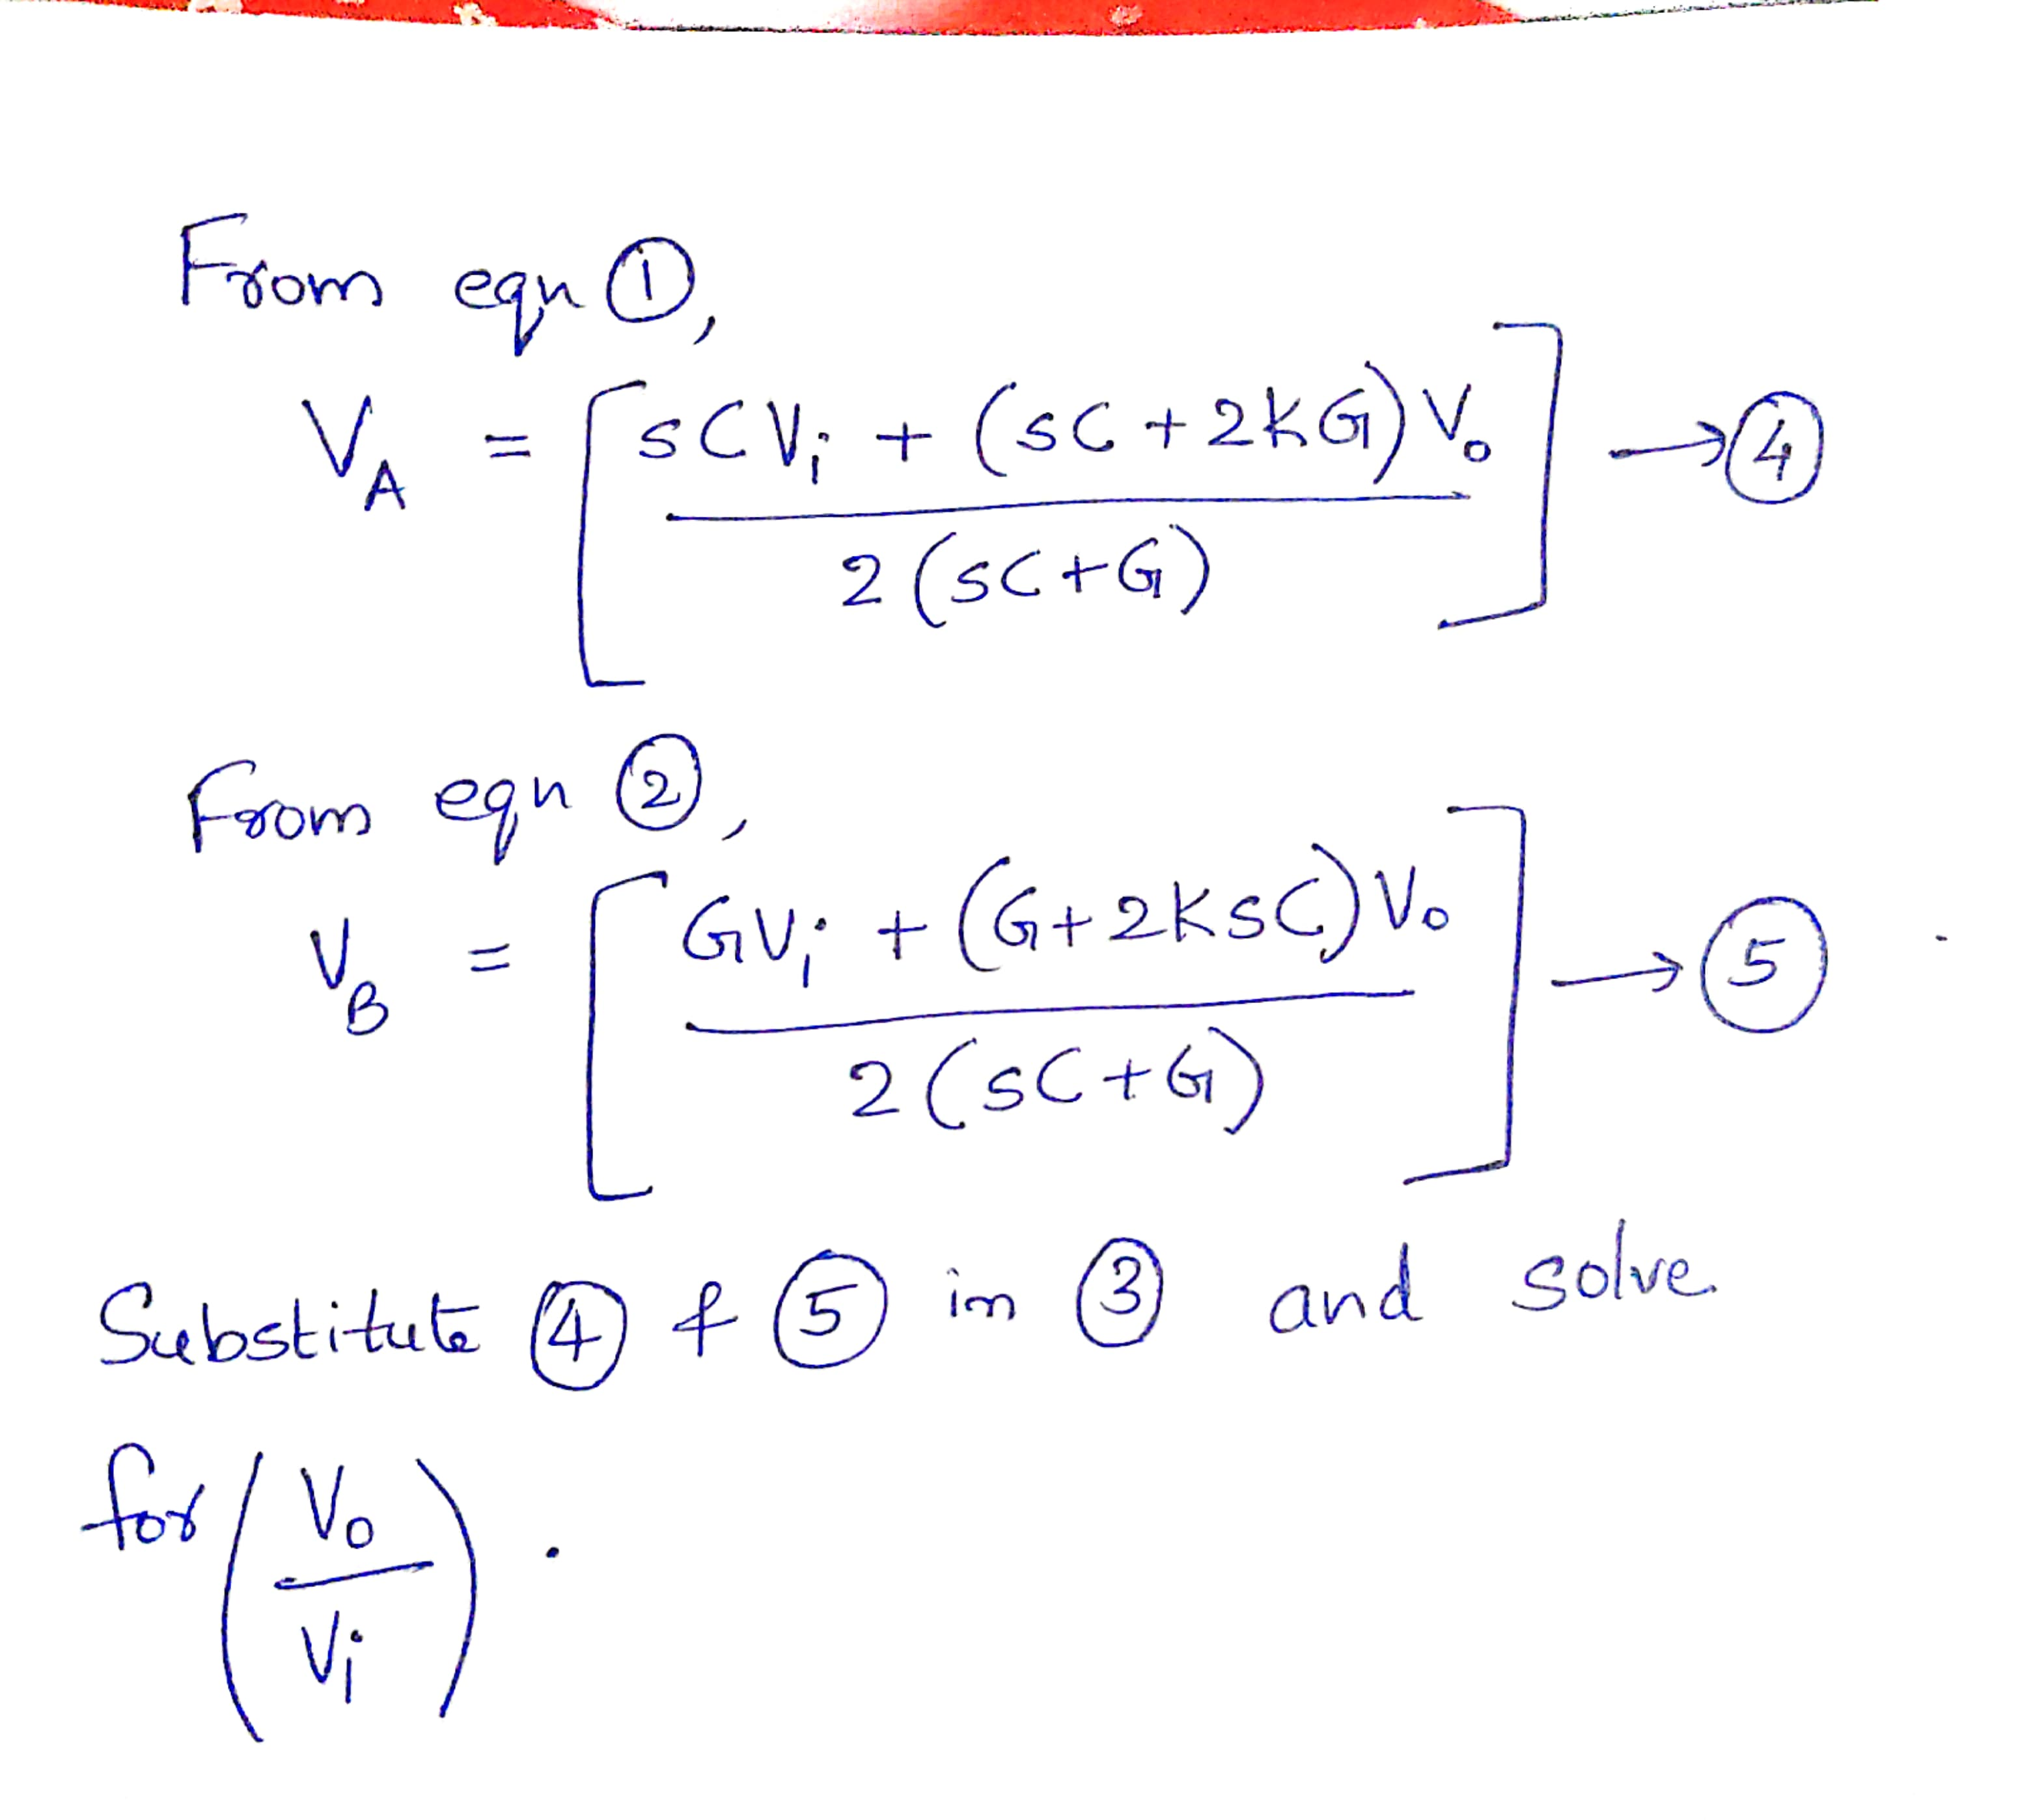 From eqn ①,
V_A = [ (sCV_i + (sC + 2KG) V_o) / (2(sC+G)) ] → ④
From eqn ②,
V_B = [ (GV_i + (G + 2KsC) V_o) / (2(sC+G)) ] → ⑤
Substitute ④ & ⑤ in ③ and solve
for (V_o / V_i).